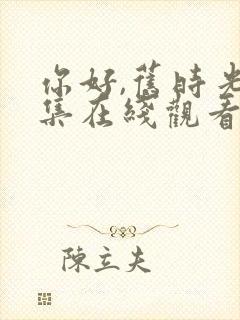 你好,舊時光
集在綫觀看
陳立夫